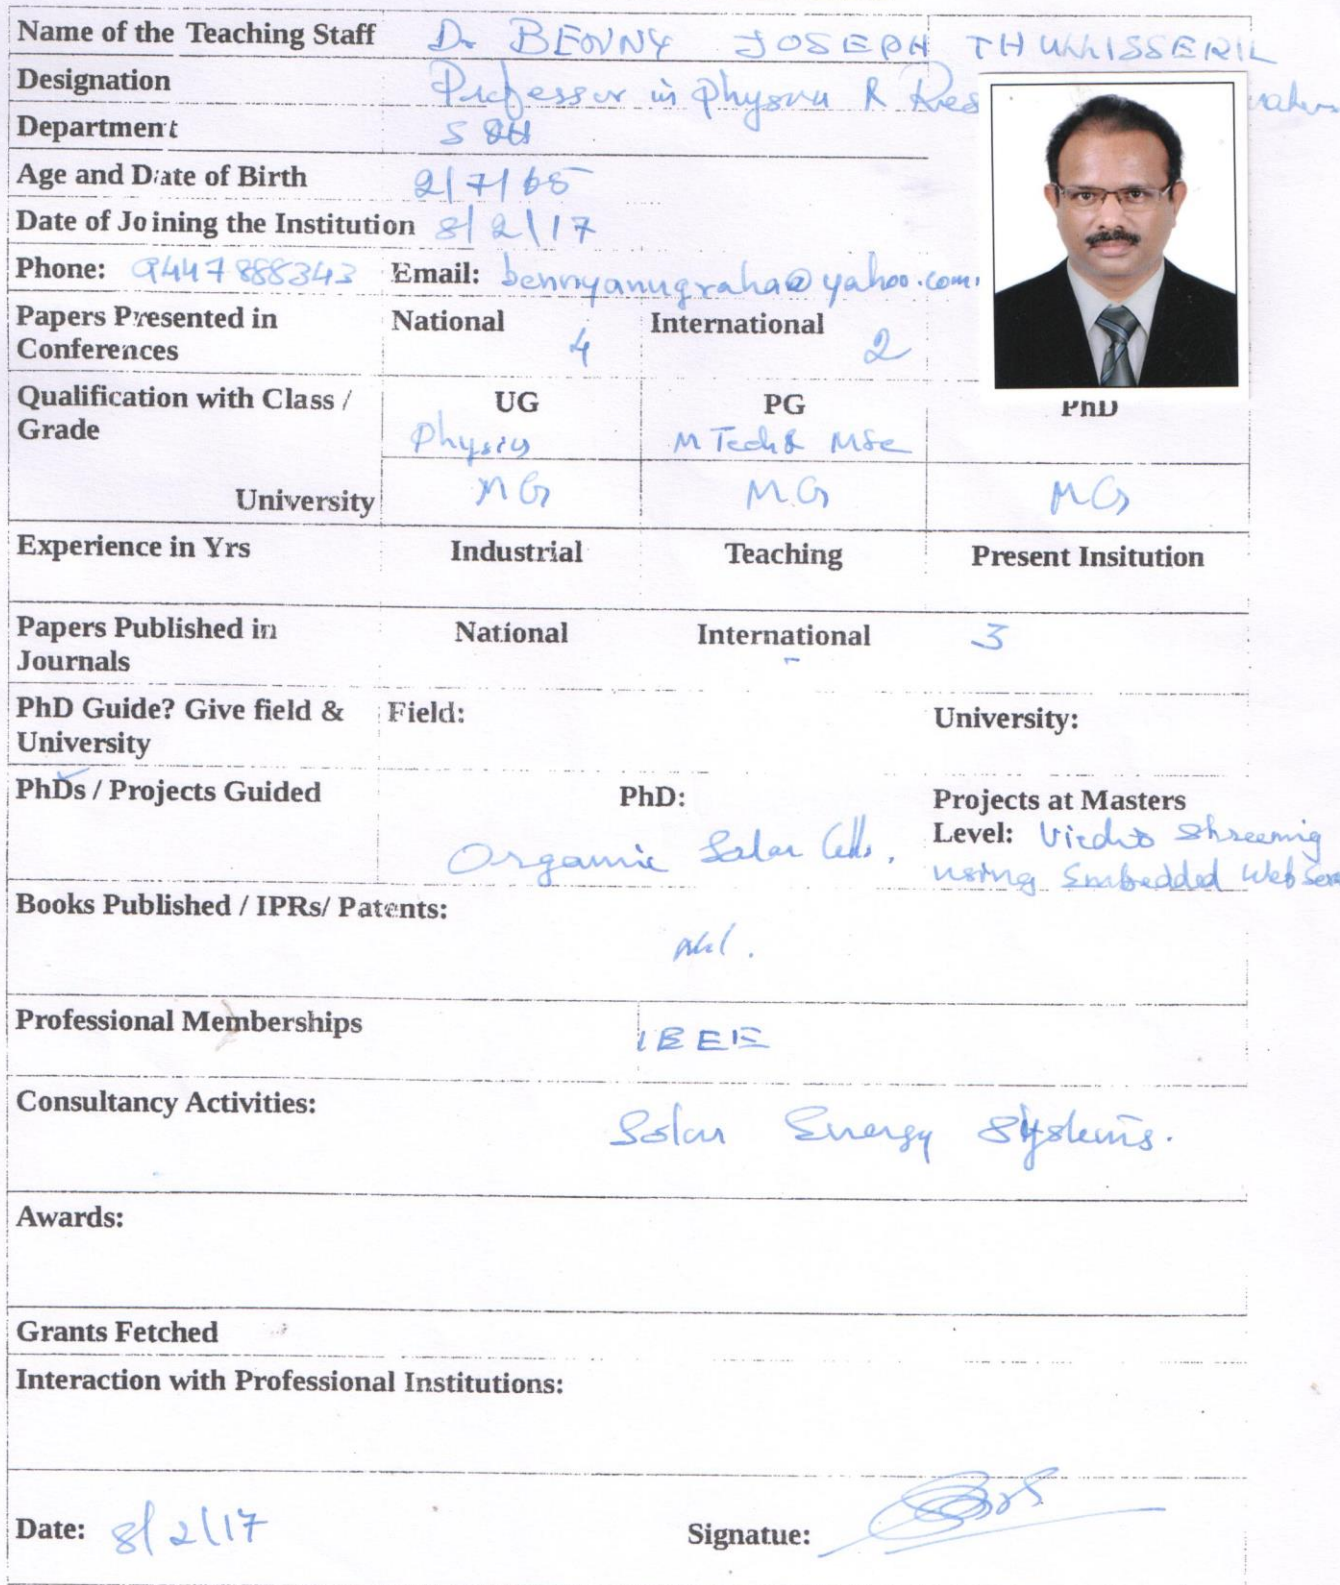 Name of the Teaching Staff Dr BENNY JOSEPH THUKKISSERIL
Designation Professor in Physics & Res
Department S&H
Age and Date of Birth 2/7/65
Date of Joining the Institution 8/2/17
Phone: 9447888343 Email: bennyanugraha@yahoo.com
Papers Presented in Conferences National 4 International 2
Qualification with Class / Grade UG PG PhD
Physics M Tech & MSc
University MG MG MG
Experience in Yrs Industrial Teaching Present Insitution
Papers Published in Journals National International - 3
PhD Guide? Give field & University Field: University:
PhDs / Projects Guided PhD: Projects at Masters
Organic Solar Cells. Level:
using Embedded Web Ser
Books Published / IPRs/ Patents:
Nil.
Professional Memberships IEEE
Consultancy Activities:
Solar Energy Systems.
Awards:
Grants Fetched
Interaction with Professional Institutions:
Date: 8/2/17 Signatue: